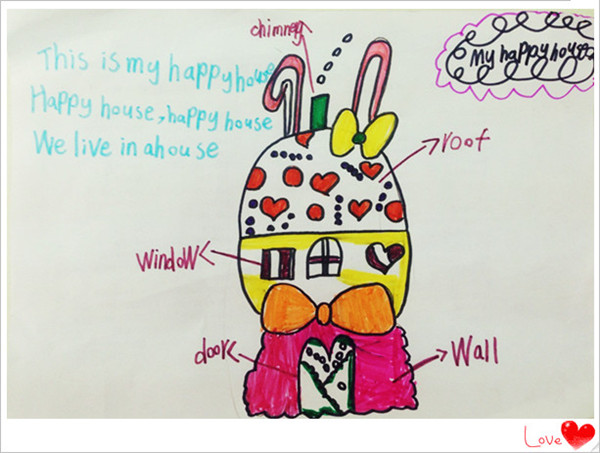 chimney
My happy house
This is my happyhouse
Happy house,happy house
We live in ahouse
roof
window
door
Wall
Love